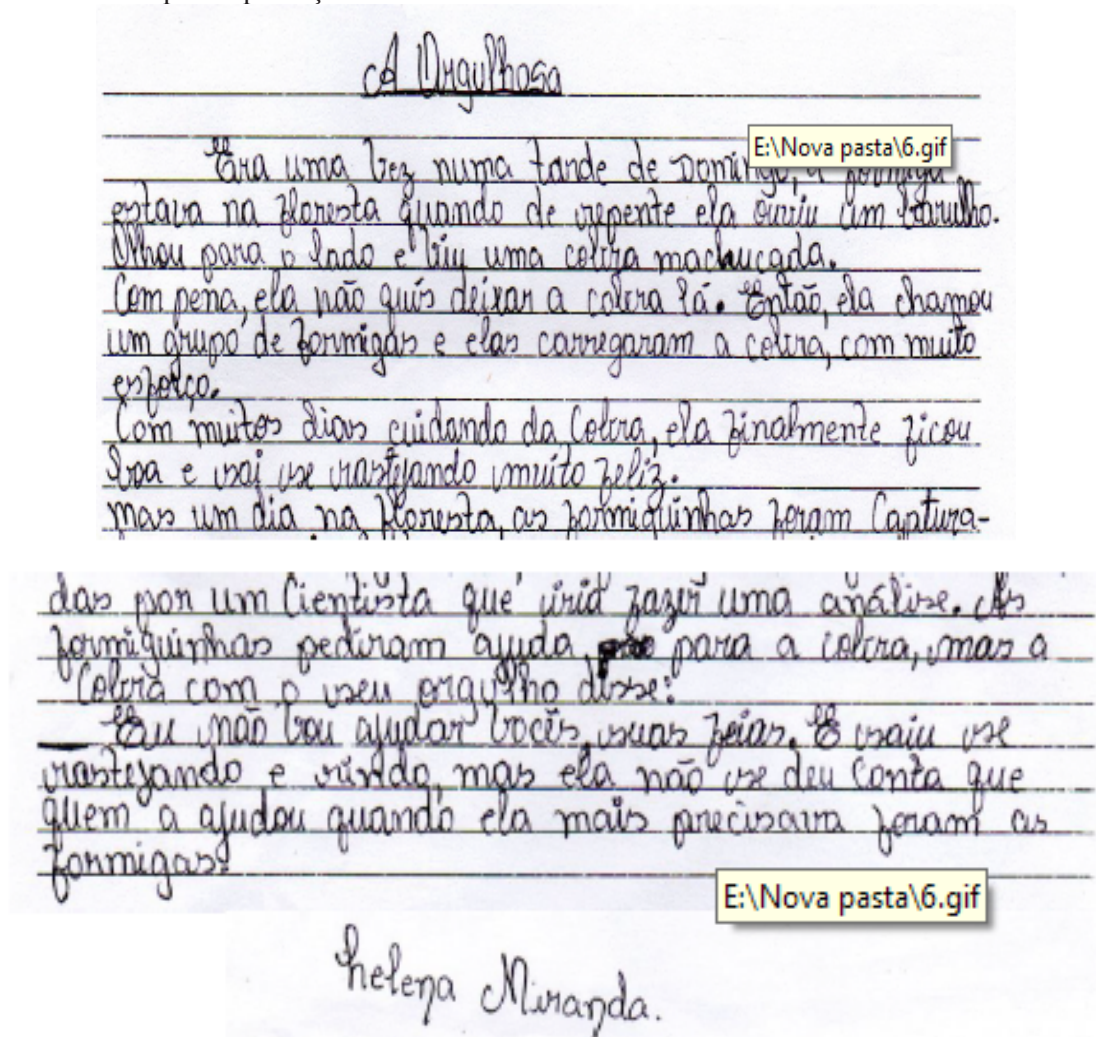 A Orgulhosa
E:\Nova pasta\6.gif
Era uma vez numa tarde de Domingo, a formiga
estava na floresta quando de repente ela ouviu um barulho.
Olhou para o lado e viu uma cobra machucada.
Com pena, ela não quis deixar a cobra lá. Então, ela chamou
um grupo de formigas e elas carregaram a cobra, com muito
esforço.
Com muitos dias cuidando da Cobra, ela finalmente ficou
boa e sai se rastejando muito feliz.
mas um dia na floresta, as formiguinhas foram Captura-
das por um Cientista que iria fazer uma análise. As
formiguinhas pediram ajuda, para a cobra, mas a
Cobra com o seu orgulho disse:
— Eu não vou ajudar vocês, suas feias. E saiu se
rastejando e rindo, mas ela não se deu conta que
quem a ajudou quando ela mais precisava foram as
formigas.
E:\Nova pasta\6.gif
helena Miranda.